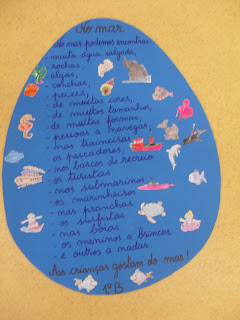 No mar
No mar podemos encontrar:
muita água salgada,
rochas,
algas,
conchas,
peixes,
- de muitas cores,
- de muitos tamanhos,
- de muitas formas,
- pessoas a navegar,
- nas traineiras
- os pescadores,
- nos barcos de recreio
- os turistas
- nos submarinos
- os marinheiros
- nas pranchas
- os surfistas
- nas boias
- os meninos a brincar
- e outros a nadar.
As crianças gostam do mar!
1º B